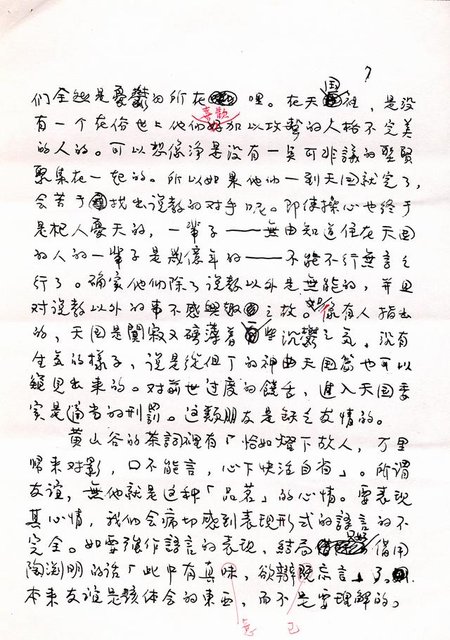 7
们全然是憂鬱的所在哩。在天国裡，是沒
喜歡
有一个在俗世上他们加以攻擊的人格不完美
的人的。可以想像淨是沒有一矣可非議的聖賢
聚集在一起的。所以如果他们一到天国就完了，
会苦于找出说教的对手呢。即使操心也终于
是杞人憂天的，一輩子——無由知道住在天国
的人的一輩子是幾億年的——不能不行無言之
行了。確家他们除了说教以外是無能的，并且
对说教以外的事不感興趣之故。像有人指出
的，天国是闃寂又磅薄着些沉鬱之気。沒有
生気的樣子，说是從但丁的神曲天国篇也可以
窺見出来的。对前世过度的饒舌，進入天国
是適当的刑罰。这類朋友是缺乏友情的。
黄山谷的茶詞裡有「恰如燈下故人，万里
歸来对影，口不能言，心下快活自省」。所谓
友谊，無他就是这种「品茗」的心情。要表現
其心情，我们会痛切感到表現形式的語言的不
完全。如要強作語言的表現，結局借用
陶渊明的话「此中有真味，欲辨忘言」了。
意 已
本来友谊是该体会的東西，而不是要理解的，